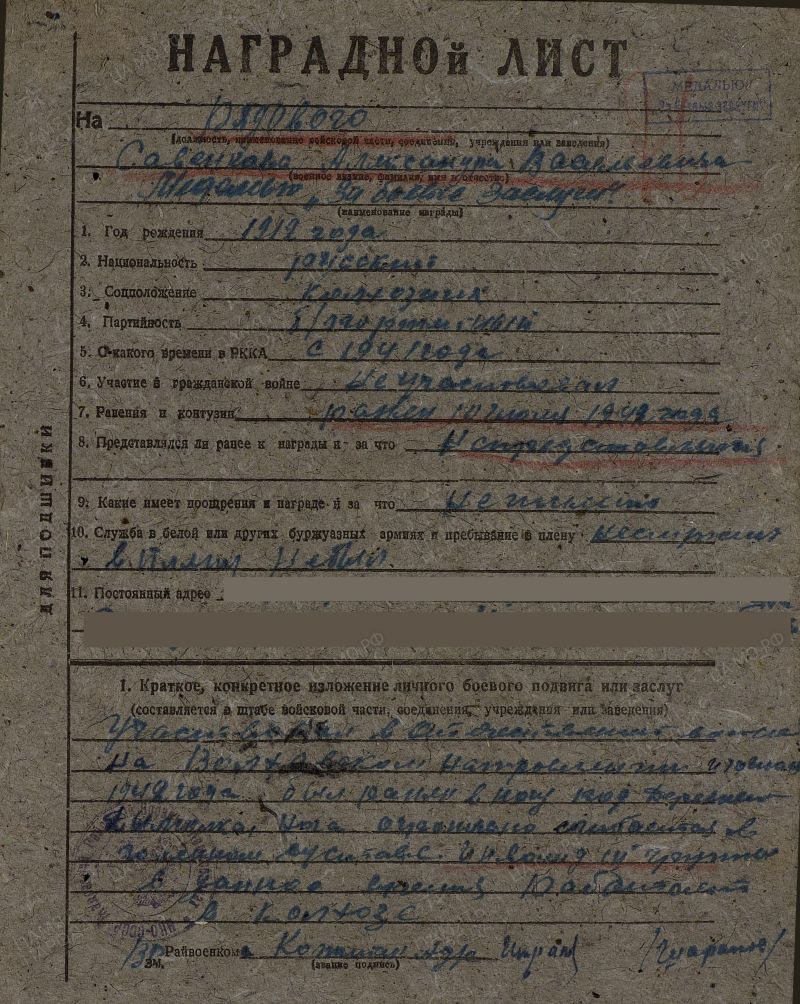 НАГРАДНОЙ ЛИСТ
МЕДАЛЬЮ
На рядового
(должность, наименование войсковой части, соединения, учреждения или заведения)
Савенкова Александра Васильевича
(военное звание, фамилия, имя и отчество)
Медалью „За боевые заслуги“
(наименование награды)
1. Год рождения 1912 года
2. Национальность русский
3. Соцположение колхозник
4. Партийность б/партийный
5. С какого времени в РККА с 1941 года
6. Участие в гражданской войне не участвовал
7. Ранения и контузии ранен 10 июля 1942 года
8. Представлялся ли ранее к награды и за что
9. Какие имеет поощрения и награде и за что не имеет
10. Служба в белой или других буржуазных армиях и пребывание в плену не служил
в плену не был
11. Постоянный адрес
1. Краткое, конкретное изложение личного боевого подвига или заслуг
(составляется в штабе войсковой части, соединения, учреждения или заведения)
Участвовал в отечественной войне
на Волховском направлении
1942 года был ранен в ногу под деревней
нога сгибается в
суставе. Инвалид III группы
в данное время работает
в колхозе
Вр Райвоенкома Капитан
(звание подпись)
ДЛЯ ПОДШИВКИ